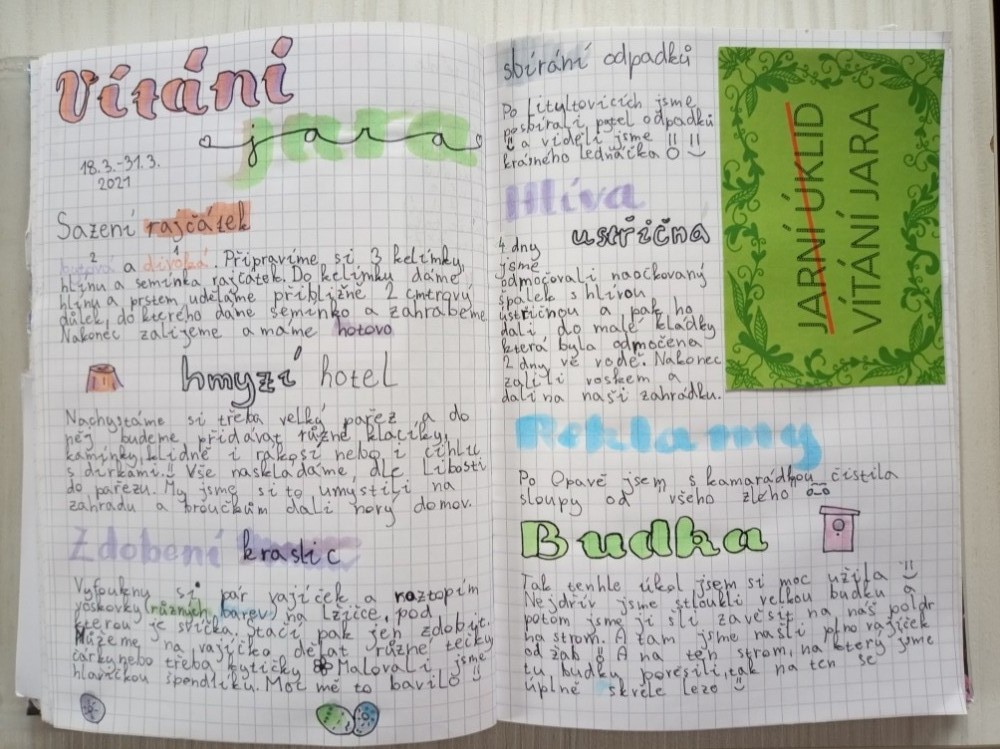 Vítání
jara
18.3.-31.3.
2021
Sazení rajčátek
2 1
a divoká. Připravíme si 3 kelímky,
hlínu a semínka rajčátek. Do kelímku dáme
hlínu a prstem uděláme přibližně 2 cmtrový
důlek, do kterého dáme semínko a zahrabeme.
Nakonec zalijeme a máme hotovo
hmyzí hotel
Nachystáme si třeba velký pařez a do
něj budeme přidávat různé klacíky,
kamínky, klidně i rákosí nebo i cihlu
s dírkami.!! Vše naskládáme dle libosti
do pařezu. My jsme si to umýstili na
zahradu a broučkům dali nový domov.
Zdobení kraslic
Vyfoukny si pár vajíček a roztopím
voskovky (různých barev) na lžíčce, pod
kterou je svíčka. Stačí pak jen zdobit.
Můžeme na vajíčko dělat různé tečky
čárky nebo třeba kytičky Malovali jsme
hlavičkou špendlíku. Moc mě to bavilo
sbírání odpadků
Po Lityltovicích jsme
posbírali pytel odpadků
a viděli jsme !!
krásného ledňáčka
Hlíva
ustřičná
4 dny
jsme
odmočovali naočkovaný
špalek s hlívou
ústřičnou a pak ho
dali do malé kládky
která byla odmočena
2 dny ve vodě. Nakonec
zalili voskem a
dali na naši zahrádku.
JARNÍ ÚKLID
VÍTÁNÍ JARA
Reklamy
Po Opavě jsem s kamarádkou čistila
sloupy od všeho zlého
Budka
Tak tenhle úkol jsem si moc užila
Nejdřív jsme stloukli velkou budku a
potom jsme ji šli zavěsit na náš poldr
na strom. A tam jsme našli plno vajíček
od žab !! A na ten strom, na který jsme
tu budku pověsili, tak na ten se
úplně skvěle leze